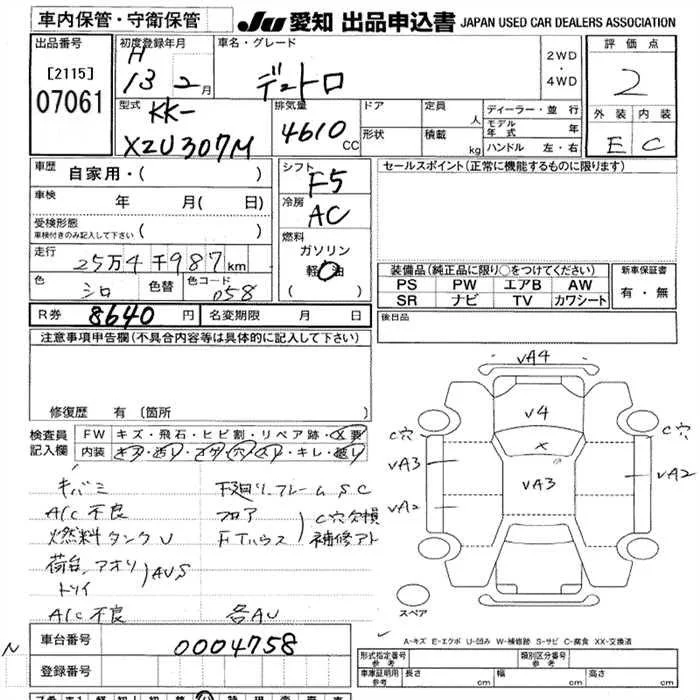 車内保管・守衛保管
JU 愛知 出品申込書 JAPAN USED CAR DEALERS ASSOCIATION
出品番号
[2115]
07061
初度登録年月
H
13 2月
車名・グレード
デュトロ
2WD
・
4WD
評価点
2
外装 内装
E C
型式
KK-
XZU307M
排気量
4610 CC
ドア
形状
定員
人
積載
kg
ディーラー・並行
モデル年式 年
ハンドル 左・右
車歴 自家用・( )
車検 年 月( 日)
受検形態
車検付きのみ記入して下さい
走行 25万4千987km
色 シロ 色替 色コード 058
シフト
F5
冷房
AC
燃料
ガソリン
軽油
( )
セールスポイント(正常に機能するものに限ります)
装備品(純正品に限り○をつけてください)
PS PW エアB AW
SR ナビ TV カワシート
新車保証書
有・無
R券 8640円 名変期限 月 日
後日品
注意事項申告欄(不具合内容等は具体的に記入して下さい)
修復歴 有 (箇所
検査員
記入欄
FW キズ・飛石・ヒビ割・リペア跡・X要
内装
キバミ
A/C不良
燃料タンクU
荷台、アオリ
トリイ
AUS
A/C不良
下廻り、フレームSC
フロア
FTハウス
C穴欠損
補修アト
各AU
VA4
V4
X
VA3
C穴
VA3
VA2
C穴
VA2
スペア
A-キズ E-エクボ U-凹み W-補修跡 S-サビ C-腐食 XX-交換済
N
車台番号 0004758
登録番号
形式指定番号
参考
類別区分番号
参考
車庫証明用
参考
長さ cm 幅 cm 高さ cm